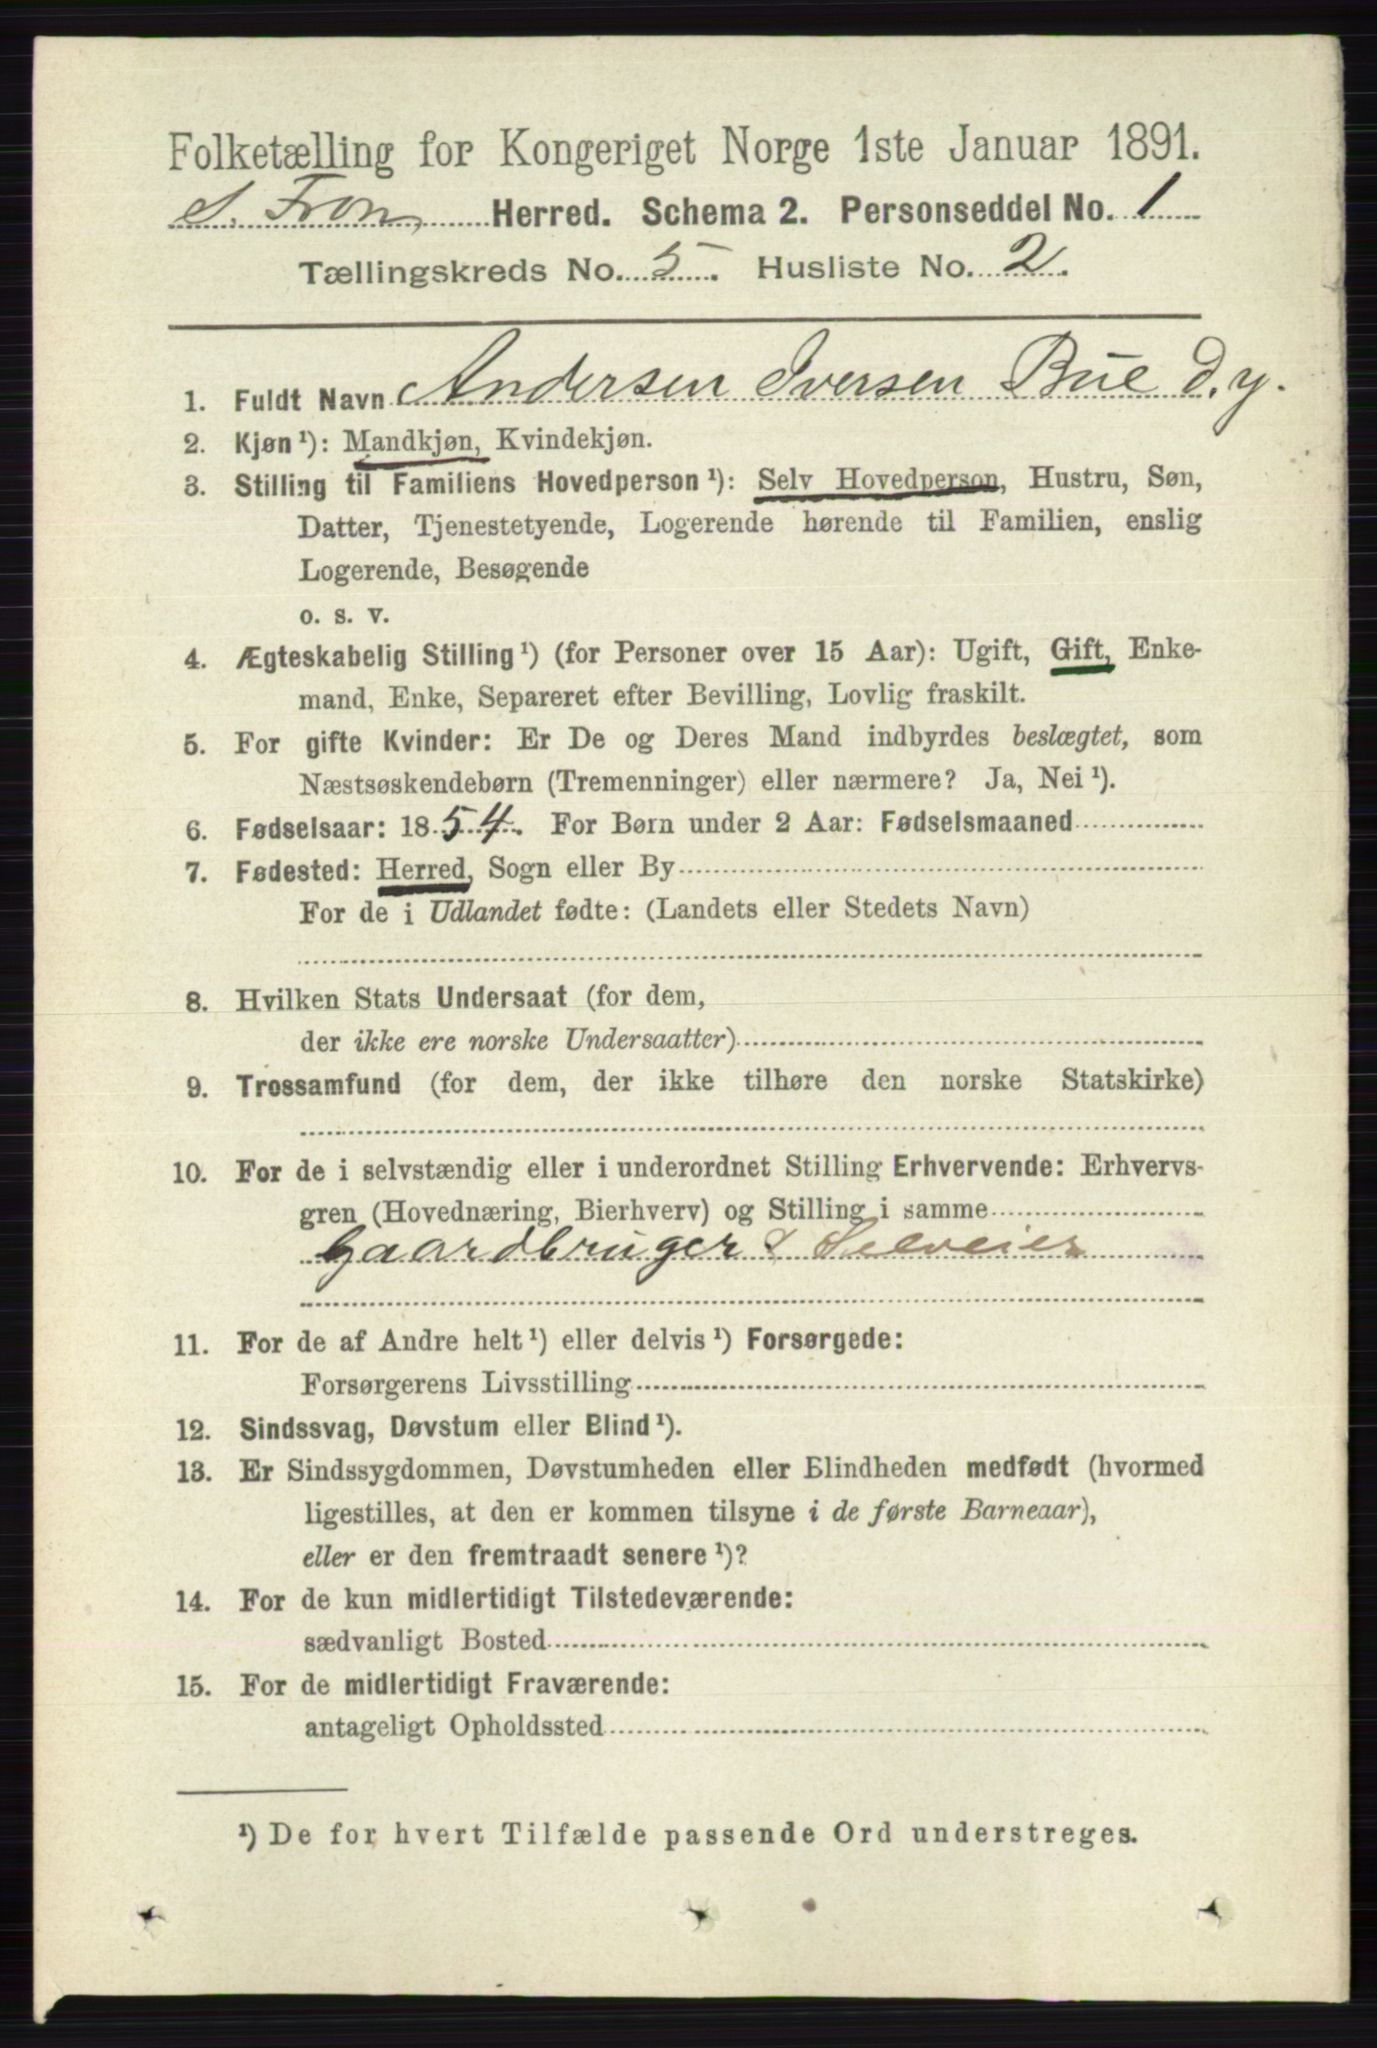 Folketælling for Kongeriget Norge 1ste Januar 1891.
S. Fron Herred. Schema 2. Personseddel No. 1
Tællingskreds No. 5. Husliste No. 2.
1. Fuldt Navn Andersen Iversen Bue d. y.
2. Kjøn ¹): Mandkjøn, Kvindekjøn.
3. Stilling til Familiens Hovedperson ¹): Selv Hovedperson, Hustru, Søn,
Datter, Tjenestetyende, Logerende hørende til Familien, enslig
Logerende, Besøgende
o. s. v.
4. Ægteskabelig Stilling ¹) (for Personer over 15 Aar): Ugift, Gift, Enke-
mand, Enke, Separeret efter Bevilling, Lovlig fraskilt.
5. For gifte Kvinder: Er De og Deres Mand indbyrdes beslægtet, som
Næstsøskendebørn (Tremenninger) eller nærmere? Ja, Nei ¹).
6. Fødselsaar: 1854. For Børn under 2 Aar: Fødselsmaaned
7. Fødested: Herred, Sogn eller By
For de i Udlandet fødte: (Landets eller Stedets Navn)
8. Hvilken Stats Undersaat (for dem,
der ikke ere norske Undersaatter)
9. Trossamfund (for dem, der ikke tilhøre den norske Statskirke)
10. For de i selvstændig eller i underordnet Stilling Erhvervende: Erhvervs-
gren (Hovednæring, Bierhverv) og Stilling i samme
Gaardbruger & Selveier
11. For de af Andre helt ¹) eller delvis ¹) Forsørgede:
Forsørgerens Livsstilling
12. Sindssvag, Døvstum eller Blind ¹).
13. Er Sindssygdommen, Døvstumheden eller Blindheden medfødt (hvormed
ligestilles, at den er kommen tilsyne i de første Barneaar),
eller er den fremtraadt senere ¹)?
14. For de kun midlertidigt Tilstedeværende:
sædvanligt Bosted
15. For de midlertidigt Fraværende:
antageligt Opholdssted
¹) De for hvert Tilfælde passende Ord understreges.